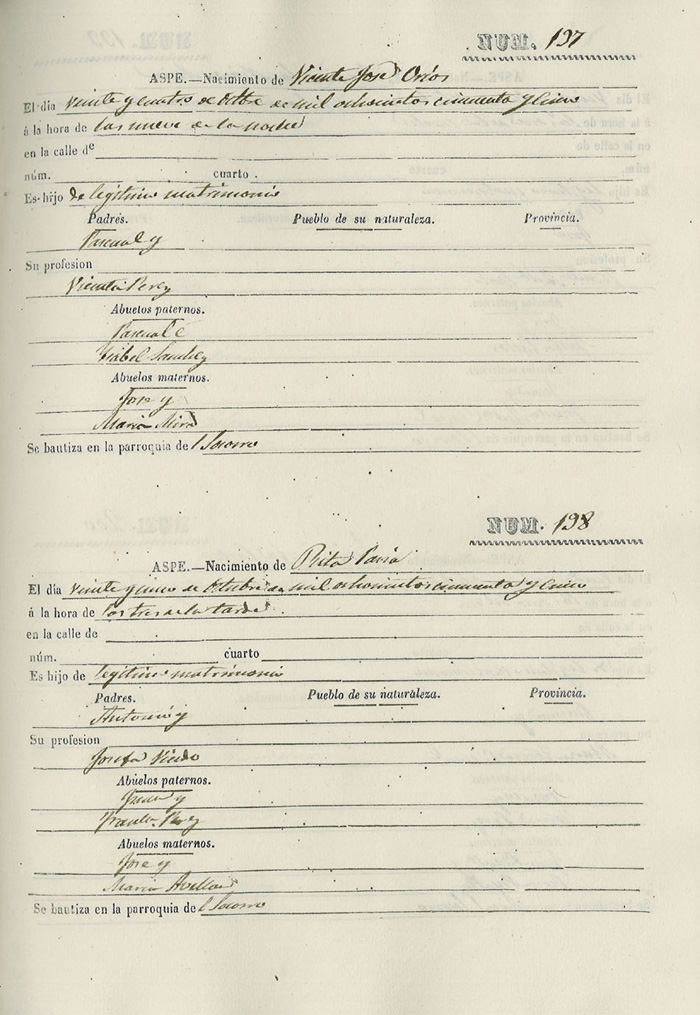 NUM. 197
ASPE.—Nacimiento de Vicente José Orios
El dia veinte y cuatro de Octbre de mil ochocientos cincuenta y cinco
á la hora de las nueve de la noche
en la calle de
núm. cuarto .
Es hijo de legitimo matrimonio
Padres. Pueblo de su naturaleza. Provincia.
Pascual y
Su profesion
Vicenta Perez
Abuelos paternos.
Pascual é
Isabel Sanchez
Abuelos maternos.
Jose y
Maria Mira
Se bautiza en la parroquia de l Socorro
NUM. 198
ASPE.—Nacimiento de Rita
El dia veinte y cinco de Octubre de mil ochocientos cincuenta y cinco
á la hora de las tres de la tarde
en la calle de
núm. cuarto
Es hijo de legitimo matrimonio
Padres. Pueblo de su naturaleza. Provincia.
Antonio y
Su profesion
Josefa
Abuelos paternos.
y
Perez
Abuelos maternos.
Jose y
Maria
Se bautiza en la parroquia de l Socorro